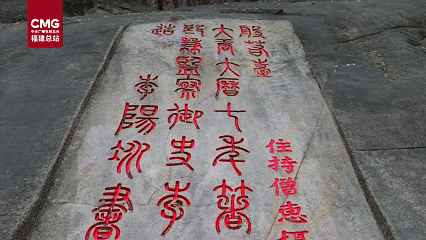 CMG
中央广播电视总台
福建总站
般若臺
大唐大曆七年著
郎兼監察御史李
造 李陽冰書
住持僧惠